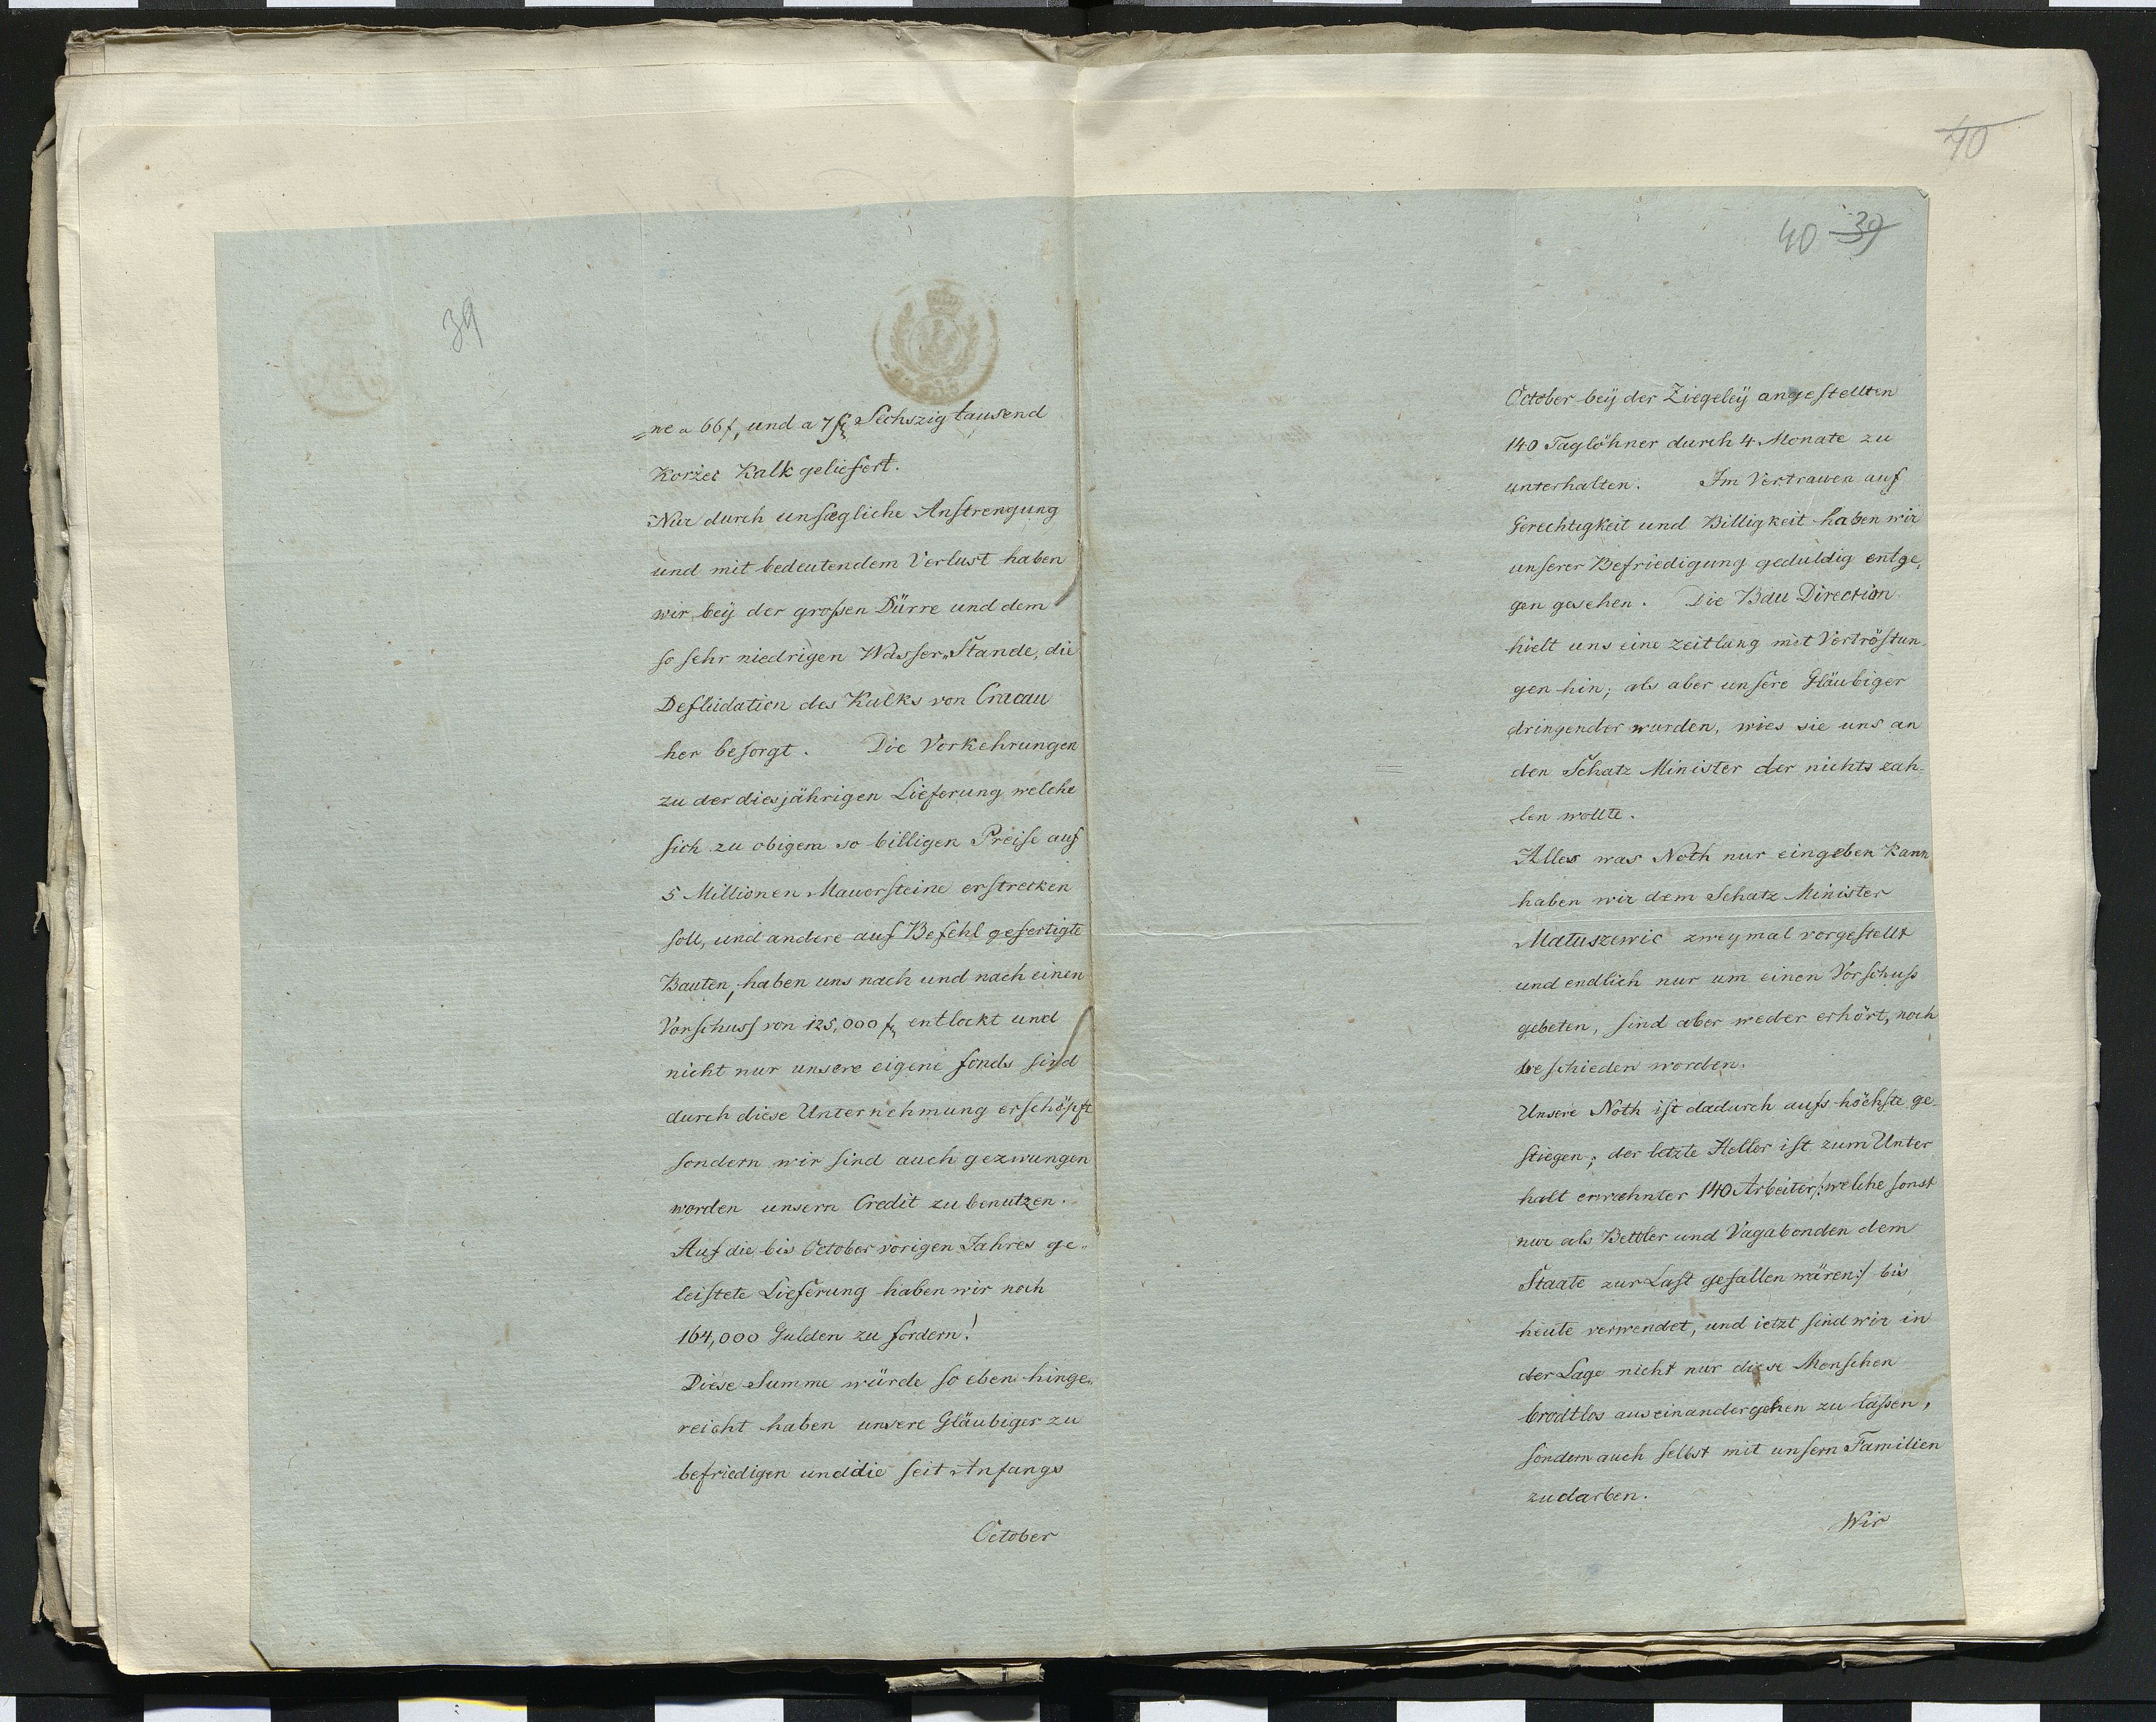 39
=ne a 66f, und a 7f Sechszig tausend
Korzec Kalk geliefert.
Nur durch unsægliche Anstrengung
und mit bedeutendem Verlust haben
wir, bey der großen Dürre und dem
so sehr niedrigen Wasser„Stande, die
Defluidation des Kalks von Cracau
her besorgt. Die Vorkehrungen
zu der diesjährigen Lieferung welche
sich zu obigem so billigen Preise auf
5 Millionen Mauersteine erstrecken
soll, und andere auf Befehl gefertigte
Bauten, haben uns nach und nach einen
Vorschuss von 125,000 f entlockt und
nicht nur unsere eigene fonds sind
durch diese Unternehmung erschöpft
sondern wir sind auch gezwungen
worden unsern Credit zu benutzen.
Auf die bis October vorigen Jahres ge„
leistete Lieferung haben wir noch
164,000 Gulden zu fordern!
Diese Summe würde so eben hinge„
reicht haben unsere Gläubiger zu
befriedigen und die seit Anfangs
October
40
40 39
October bey der Ziegeley angestellten
140 Taglöhner durch 4 Monate zu
unterhalten. Im Vertrauen auf
Gerechtigkeit und Billigkeit haben wir
unserer Befriedigung geduldig entge„
gen gesehen. Die Bau Direction
hielt uns eine zeitlang mit Vertröstun„
gen hin; als aber unsere Gläubiger
dringender wurden, wies sie uns an
den Schatz Minister der nichts zah„
len wollte.
Alles was Noth nur eingeben kann
haben wir dem Schatz Minister
Matuszewic zweymal vorgestellt
und endlich nur um einen Vorschuß
gebeten, sind aber weder erhört, noch
beschieden worden.
Unsere Noth ist dadurch aufs höchste ge„
stiegen; der letzte Heller ist zum Unter
halt erwæhnter 140 Arbeiter /:welche sonst
nur als Bettler und Vagabonden dem
Staate zur Last gefallen wären:/ bis
heute verwendet, und ietzt sind wir in
der Lage nicht nur diese Menschen
brodtlos auseinandergehen zu laßen,
sondern auch selbst mit unsern Familien
zu darben.
Wir